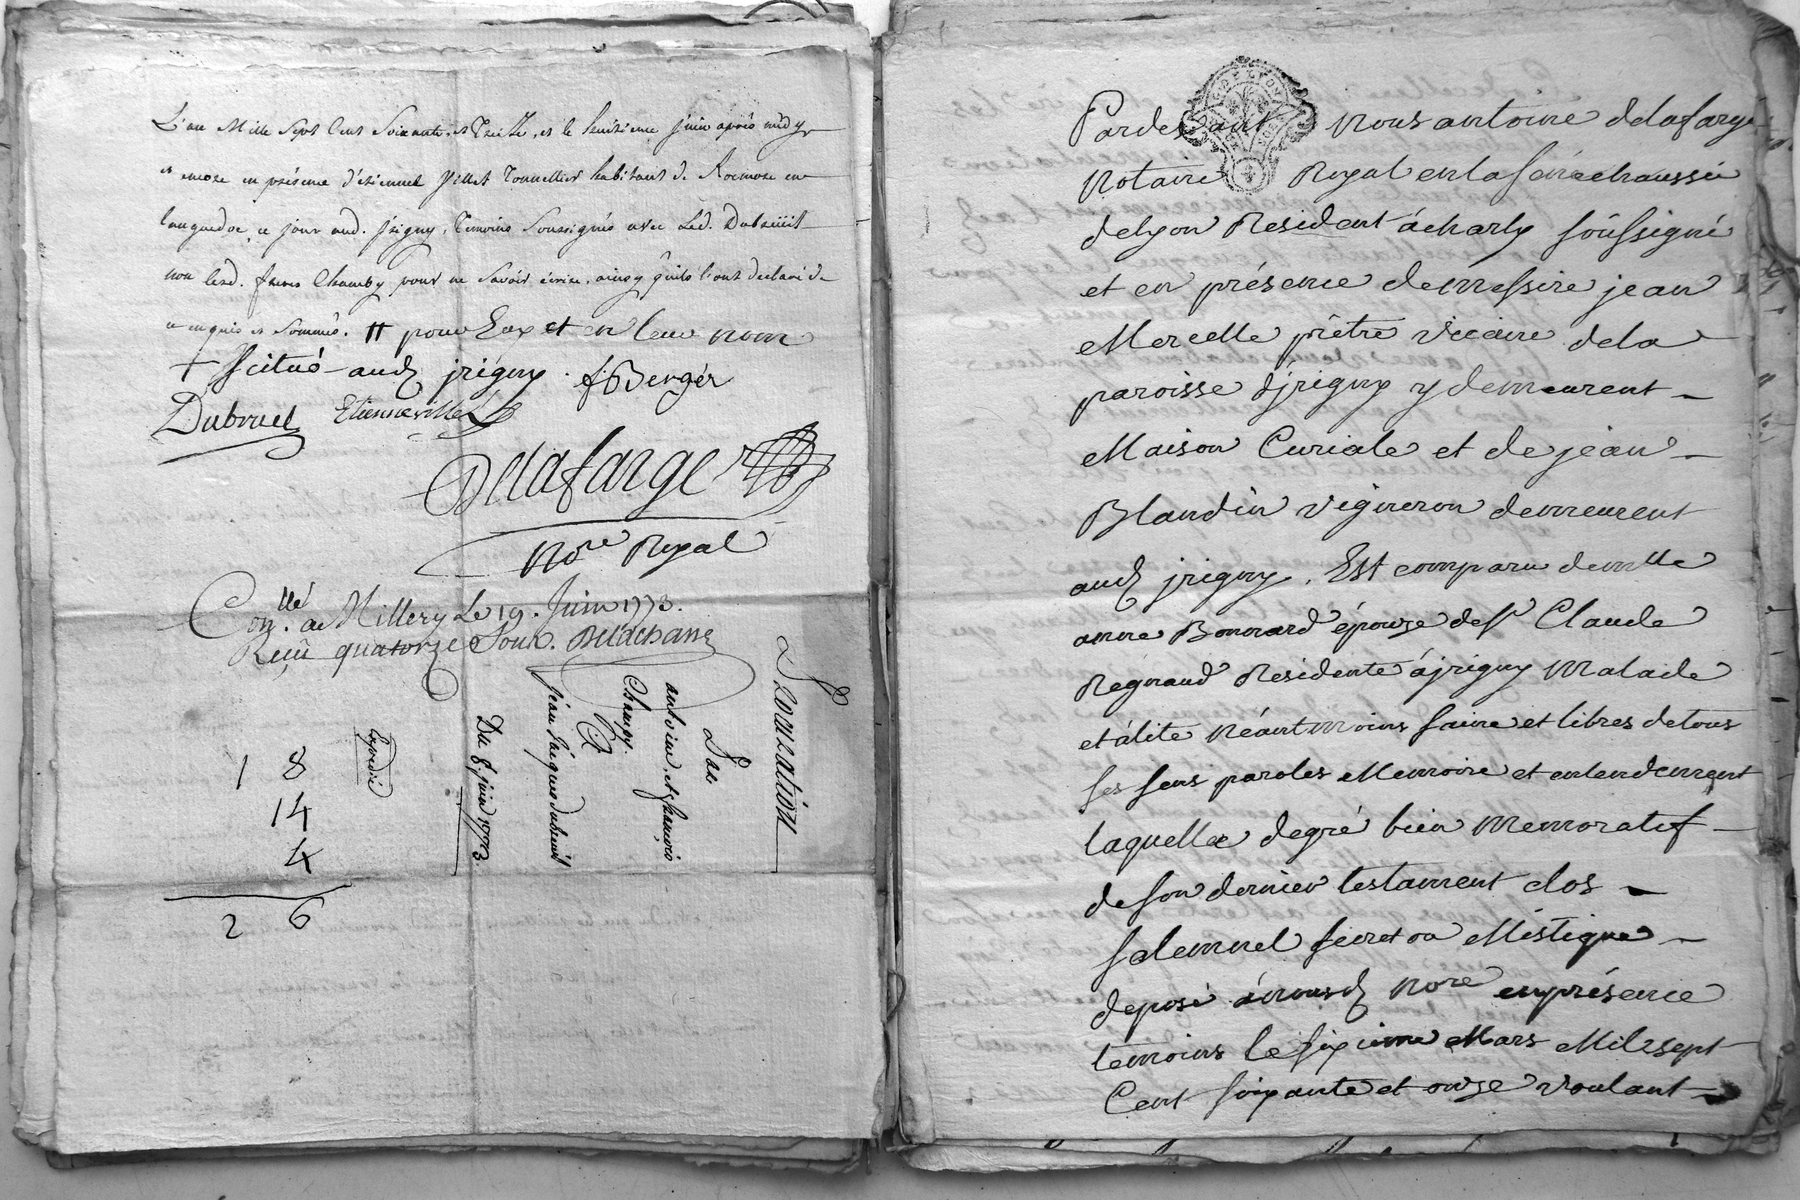 L'an Mille Sept Cent Soixante et Treize, et le huitieme juin après midy
et encore en présence d'étienne Villet Tonnellier habitant de en
languedoc, ce jour aud. jrigny, Temoins Soussignés avec Led. Dubreüil
non lesd. freres Chamby pour ne Savoir écrire, ainsy quils l'ont declaré de
ce enquis et Sommés. # pour Eux et en leur nom
+ scitué aud jrigny. fBerger
Dubreuil Etiennevillet
Delafarge
No.re Royal
Con.llé a Millery Le 19. Juin 1773.
Reçu quatorze Sous. Delachan
Location
Par
antoine et françois
Chamby.
A
jean jacques dubreüil
Du 8. juin 1773
Expedié
1 8
14
4
2 6
Pardevant Nous antoine delafarge
Notaire Royal en la sénéchaussée
de lyon Resident à charly soussigné
et en présence de messire jean
Mercelle prêtre vicaire de la
paroisse d'jrigny y demeurent
Maison Curiale et de jean
Blandin vigneron demeurent
aud jrigny. Est comparu demlle
anne Bonnard épouze de sr Claude
Régnaud Residente à jrigny Malade
et à lite Néantmoins saine et libres de tous
ses sens paroles Memoire et entendement
laquelle de gré bien Memoratif
de son dernier testament clos
solemnel secret ou Mistique
deposé à nousd Nore en présence
temoins le sixieme Mars Mil sept
Cent soixante et onze voulant